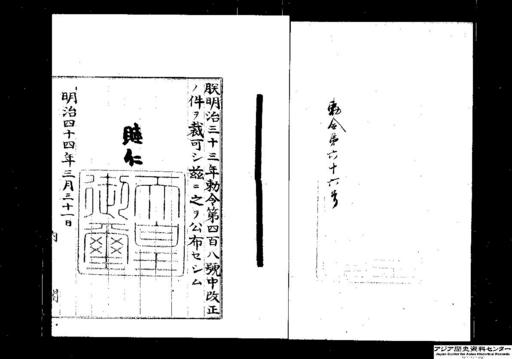 勅令第六十六号
朕明治三十三年勅令第四百八號中改正
ノ件ヲ裁可シ茲ニ之ヲ公布セシム
睦仁
天皇御璽
明治四十四年三月三十一日
内閣
アジア歴史資料センター
Japan Center for Asian Historical Records